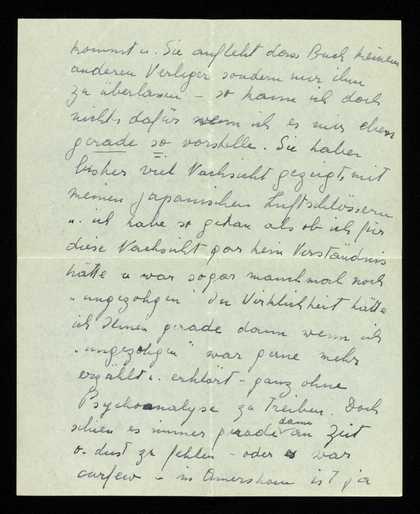 kommt u. Sie anfleht dass Buch keinem
anderen Verleger sondern nur ihm
zu überlassen – so kann ich doch
nichts dafür wenn ich es mir eben
gerade so vorstelle. Sie haben
bisher viel Nachsicht gezeigt, mit
meinen japanischen Luftschlössern
u. ich habe so getan als ob ich für
diese Nachsicht gar kein Verständnis
hätte u war sogar manchmal noch
"ungezohgen" In Wirklichkeit hätte
ich Ihnen gerade dann wenn ich
"ungezohgen" war gerne mehr
erzählt u. erklärt – ganz ohne
Psychoanalyse zu treiben. Doch
schien es immer gerade dann an Zeit
o. Lust zu fehlen – oder es war
curfew – in Amersham ist ja